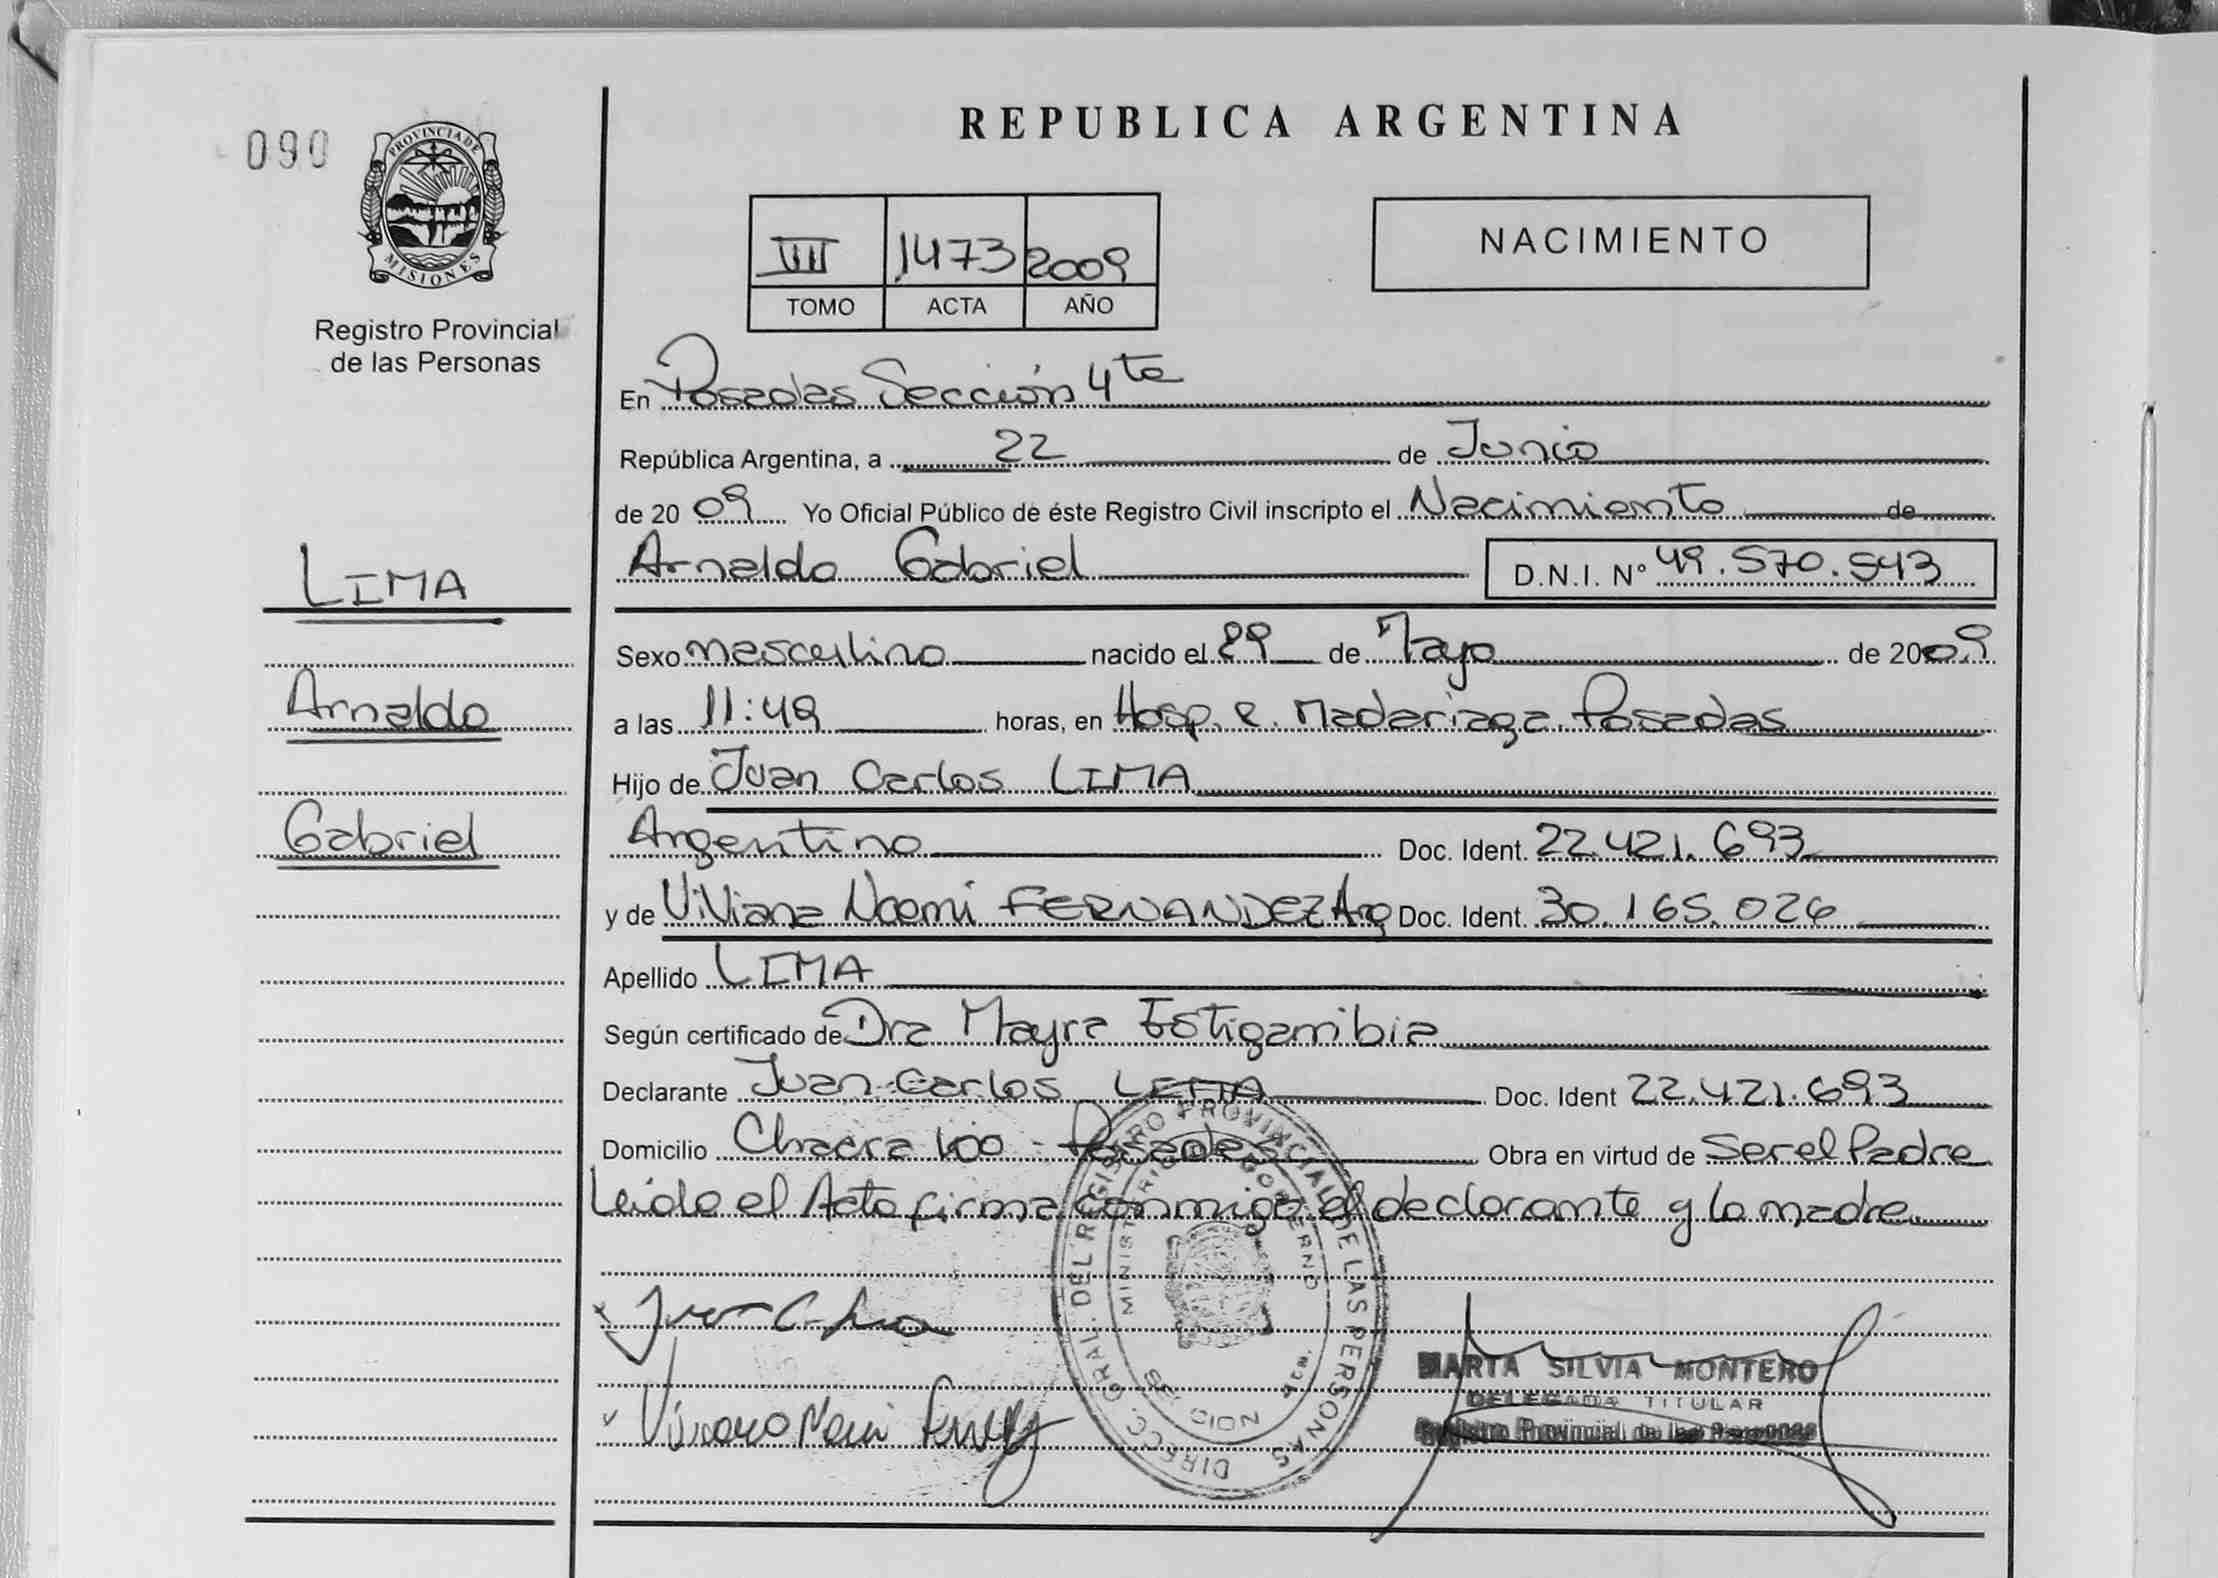 REPUBLICA ARGENTINA
090
PROVINCIA DE
MISIONES
Registro Provincial
de las Personas
1473 2009
TOMO ACTA AÑO
NACIMIENTO
En Posadas Sección 4ta
República Argentina, a 22 de Junio
de 2009 Yo Oficial Público de éste Registro Civil inscripto el Nacimiento de
Arnaldo Gabriel D.N.I. N° 49.570.543
LIMA
Sexo masculino nacido el 29 de Mayo de 2009
Arnaldo
a las 11:49 horas, en Hosp. R. Madariaga. Posadas
Hijo de Juan Carlos LIMA
Gabriel
Argentino Doc. Ident. 22.421.693
y de Viviana Noemi FERNANDEZ Arg Doc. Ident. 30.165.026
Apellido LIMA
Según certificado de Dra Mayra Estigarribia
Declarante Juan Carlos LIMA Doc. Ident 22.421.693
Domicilio Chacra 100 - Posadas Obra en virtud de Ser el Padre
Leida el Acta firma conmigo el declarante y la madre
DIRECC. GRAL. DEL REGISTRO PROVINCIAL DE LAS PERSONAS
MINISTERIO DE GOBIERNO
MARTA SILVIA MONTERO
DELEGADA TITULAR
Registro Provincial de las Personas